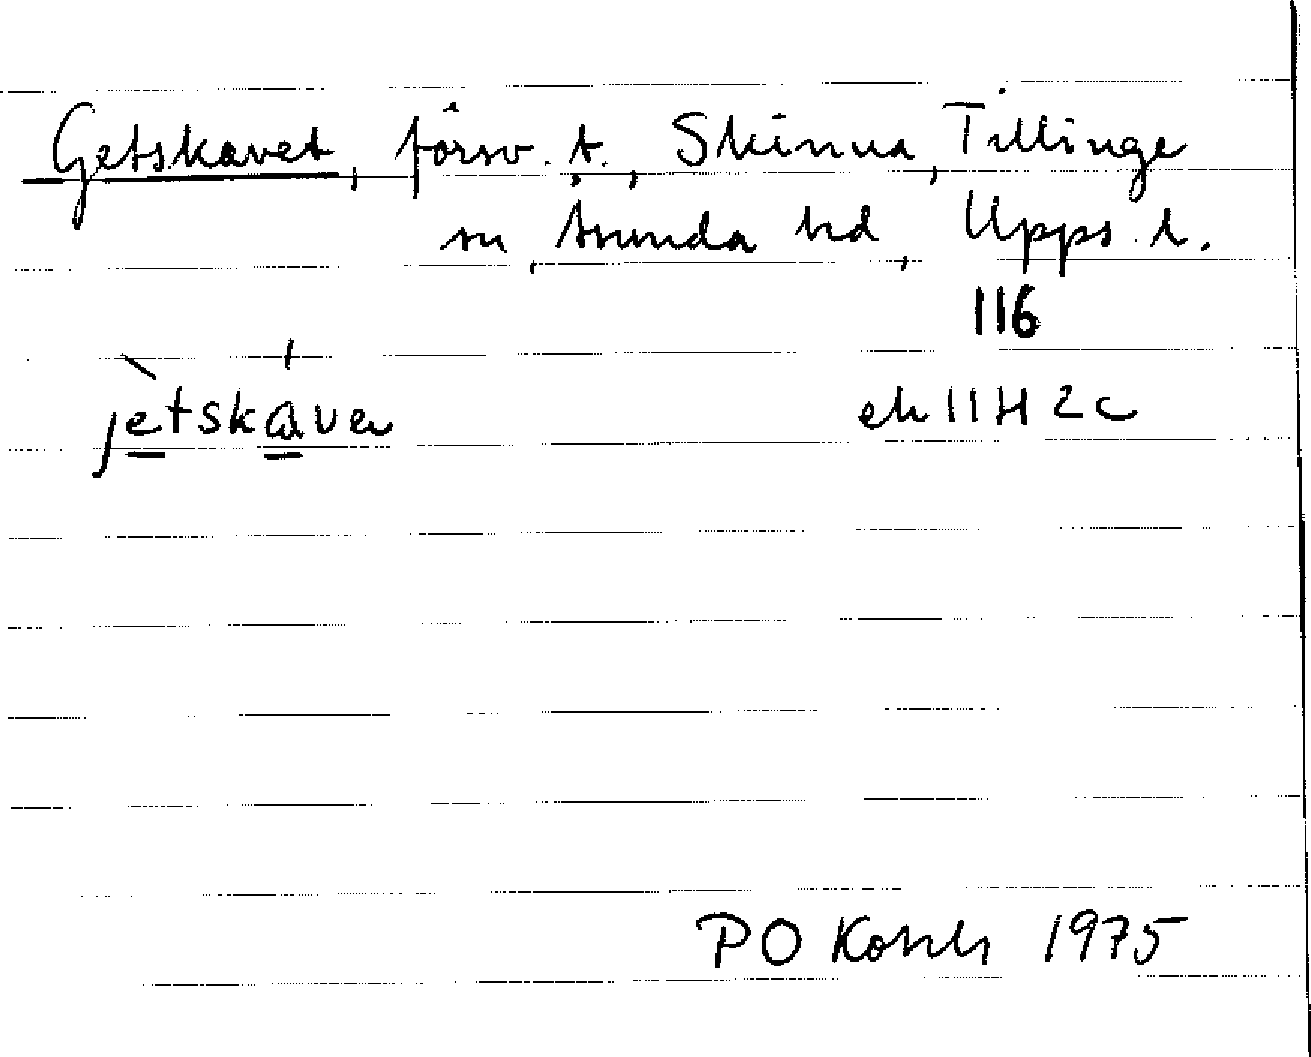 Getskavet, försv. t., Skinna, Tillinge
sn, Åsunda hd, Upps. l.
116
jètskàvea ek 11H 2c
PO Korsh 1975